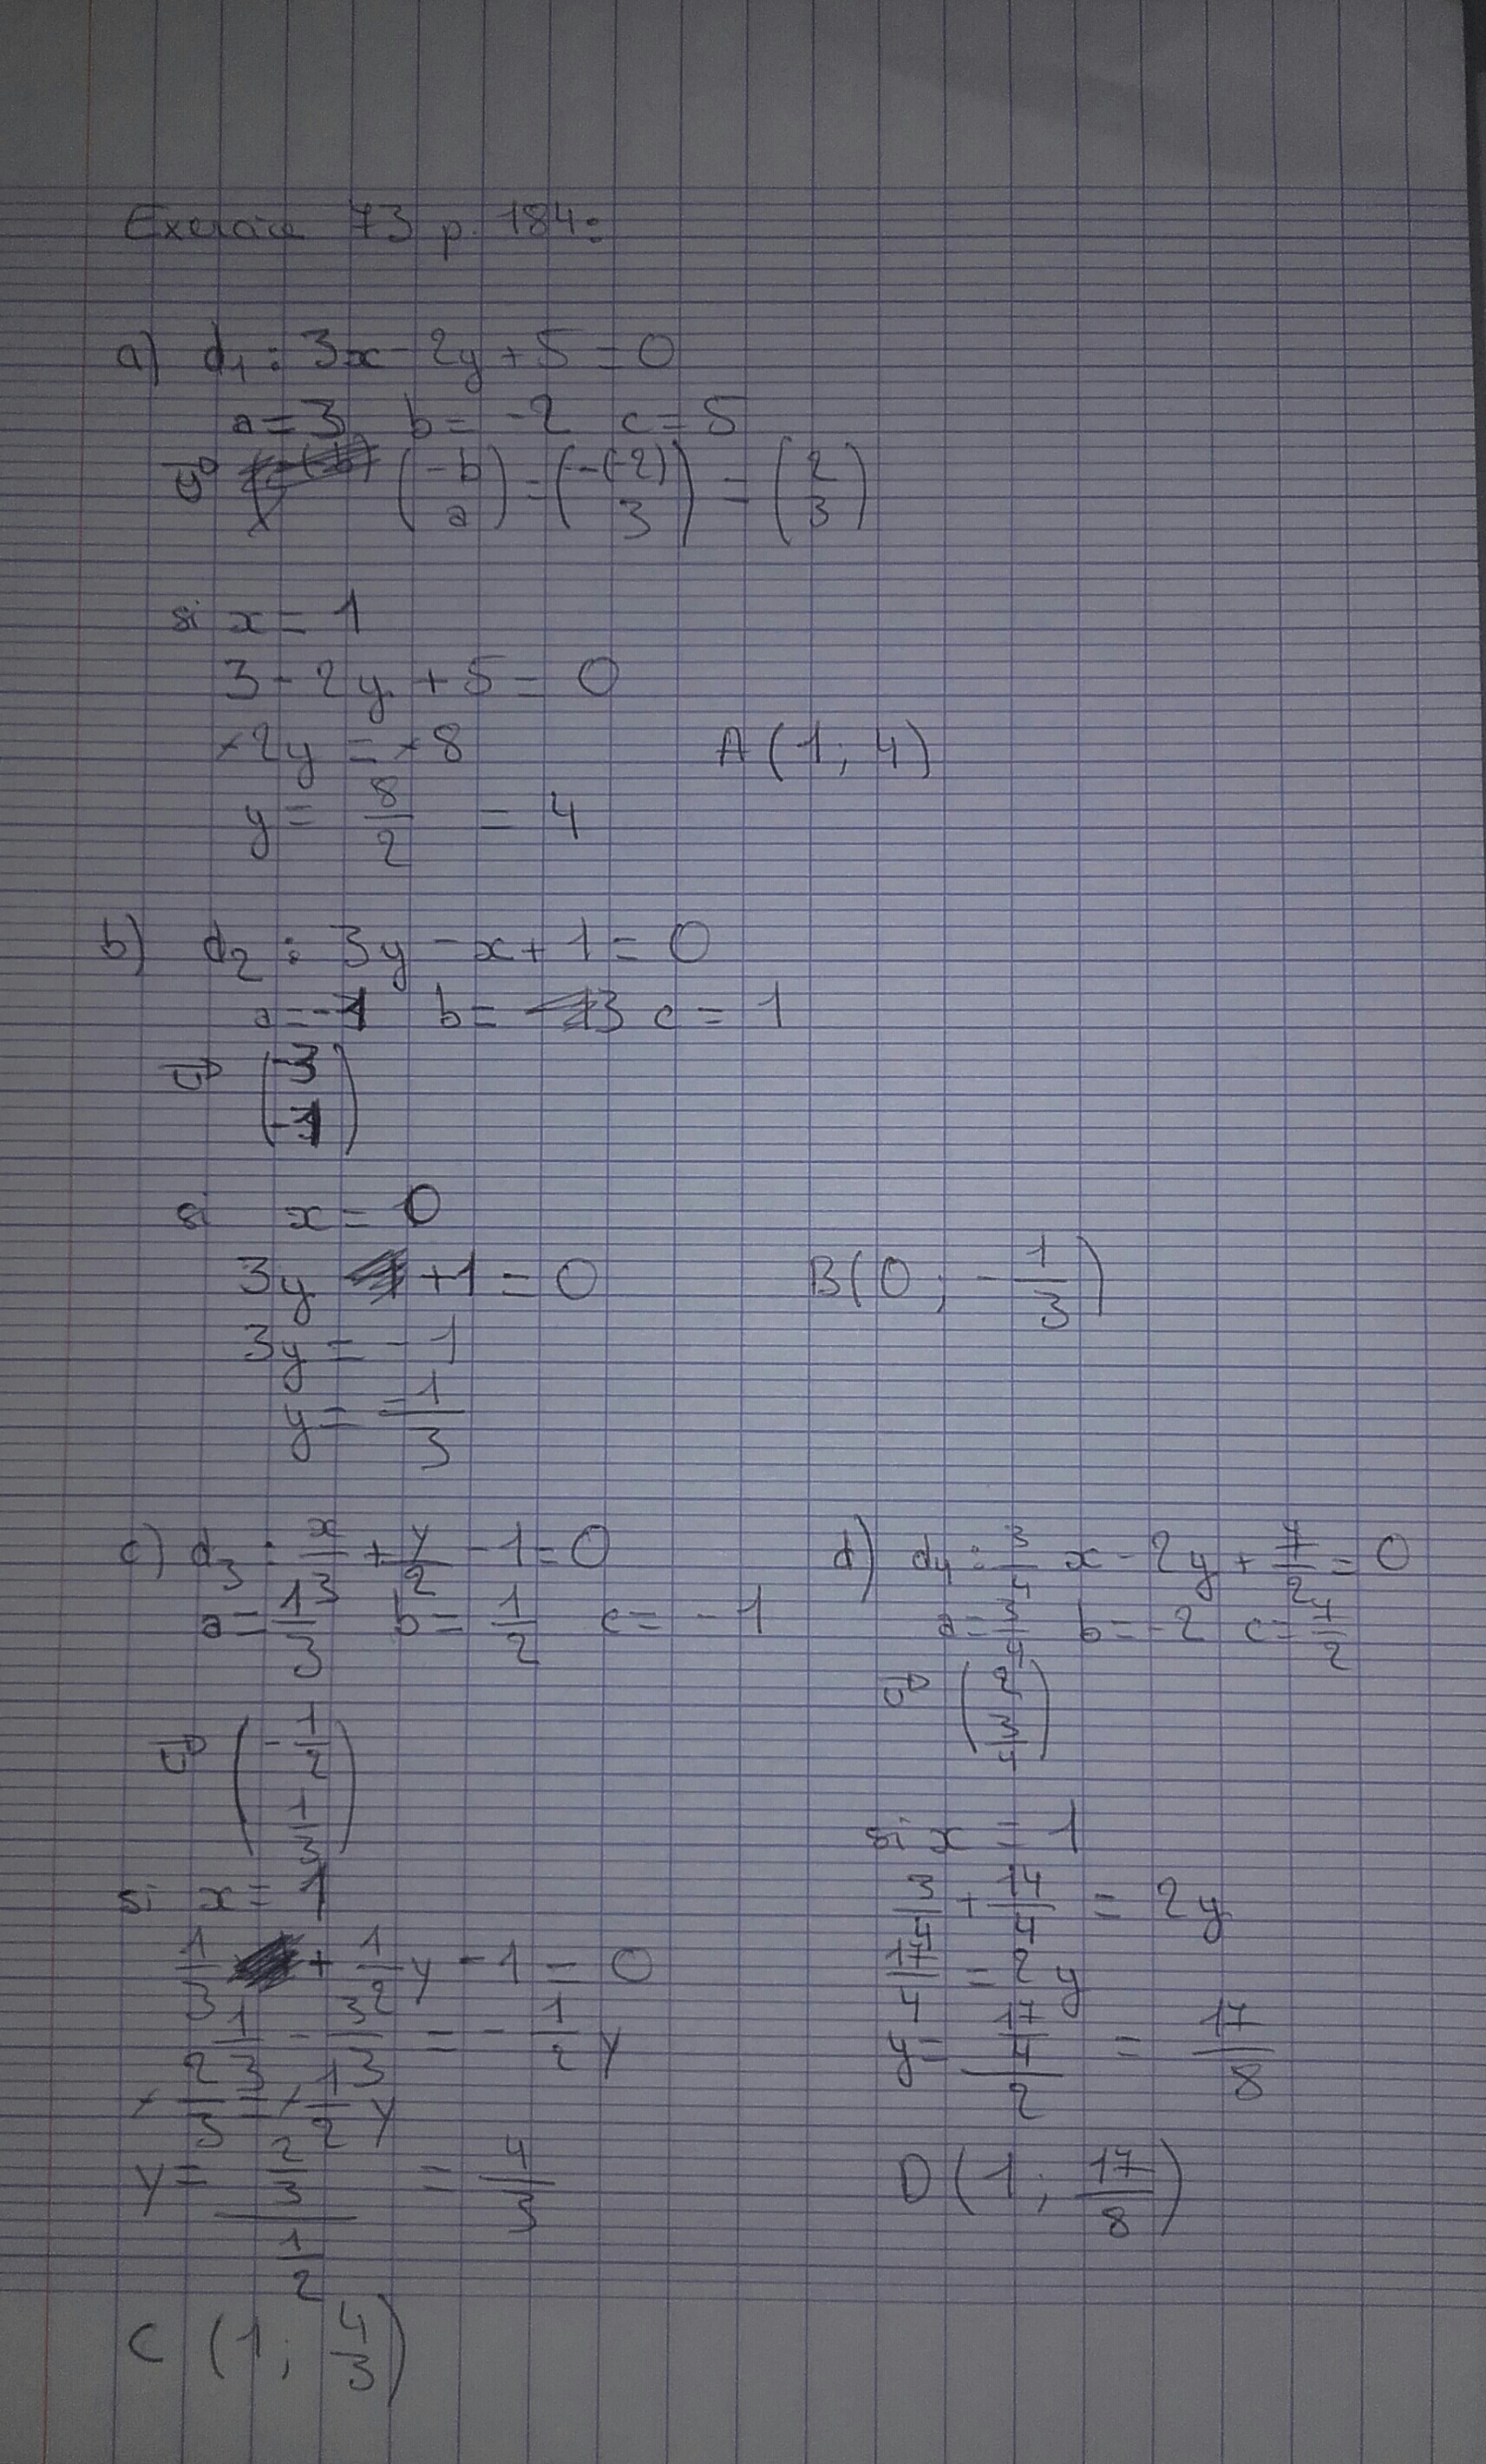 Exercice 73 p. 184:
a) d₁ : 3x - 2y + 5 = 0
a = 3 b = -2 c = 5
u⃗ (-b a) = (-(-2) 3) = (2 3)
si x = 1
3 - 2y + 5 = 0
-2y = -8
A(1; 4)
y = 8/2 = 4
b) d₂ : 3y - x + 1 = 0
a = -1 b = 3 c = 1
u⃗ (-3 -1)
si x = 0
3y + 1 = 0
B(0; -1/3)
3y = -1
y = -1/3
c) d₃ : x/3 + y/2 - 1 = 0
a = 1/3 b = 1/2 c = -1
u⃗ (-1/2 1/3)
si x = 1
1/3 + 1/2 y - 1 = 0
1/3 - 3/3 = -1/2 y
-2/3 = -1/2 y
y = (2/3)/(1/2) = 4/3
C (1; 4/3)
d) d₄ : 3/4 x - 2y + 7/2 = 0
a = 3/4 b = -2 c = 7/2
u⃗ (2 3/4)
si x = 1
3/4 + 14/4 = 2y
17/4 = 2y
y = (17/4)/2 = 17/8
D(1; 17/8)